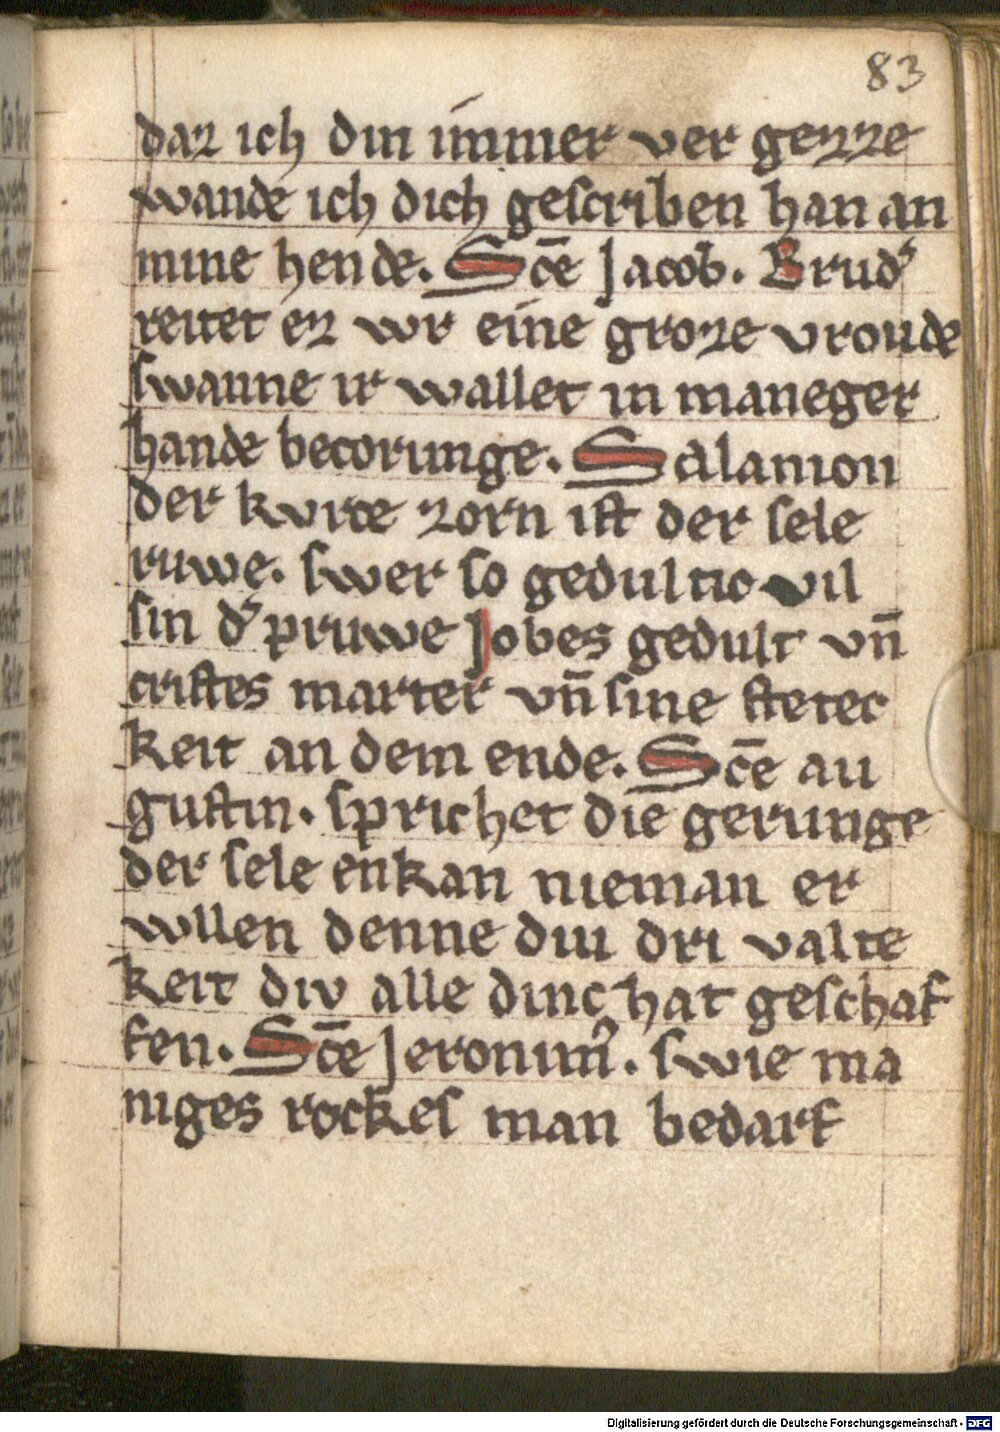 83
daz ich din immer ver gezze
wande ich dich gescriben han an
mine hende. Sc̄e Jacob. Brud᾽
reitet ez wr eine groze vroude
swanne ir wallet in maneger
hande becorunge. Salamon
der kvrce zorn ist der sele
ruwe. swer so gedultic wil
sin d᾽ pruwe Jobes gedult vn̄
cristes marter vn̄ sine stetec
keit an dem ende. Sc̄e au
gustin. sprichet die gerunge
der sele enkan nieman er
wllen denne diu dri valte
keit div alle dinc hat geschaf
fen. Sc̄e Jeronim᾽. swie ma
niges rockes man bedarf
Digitalisierung gefördert durch die Deutsche Forschungsgemeinschaft - DFG